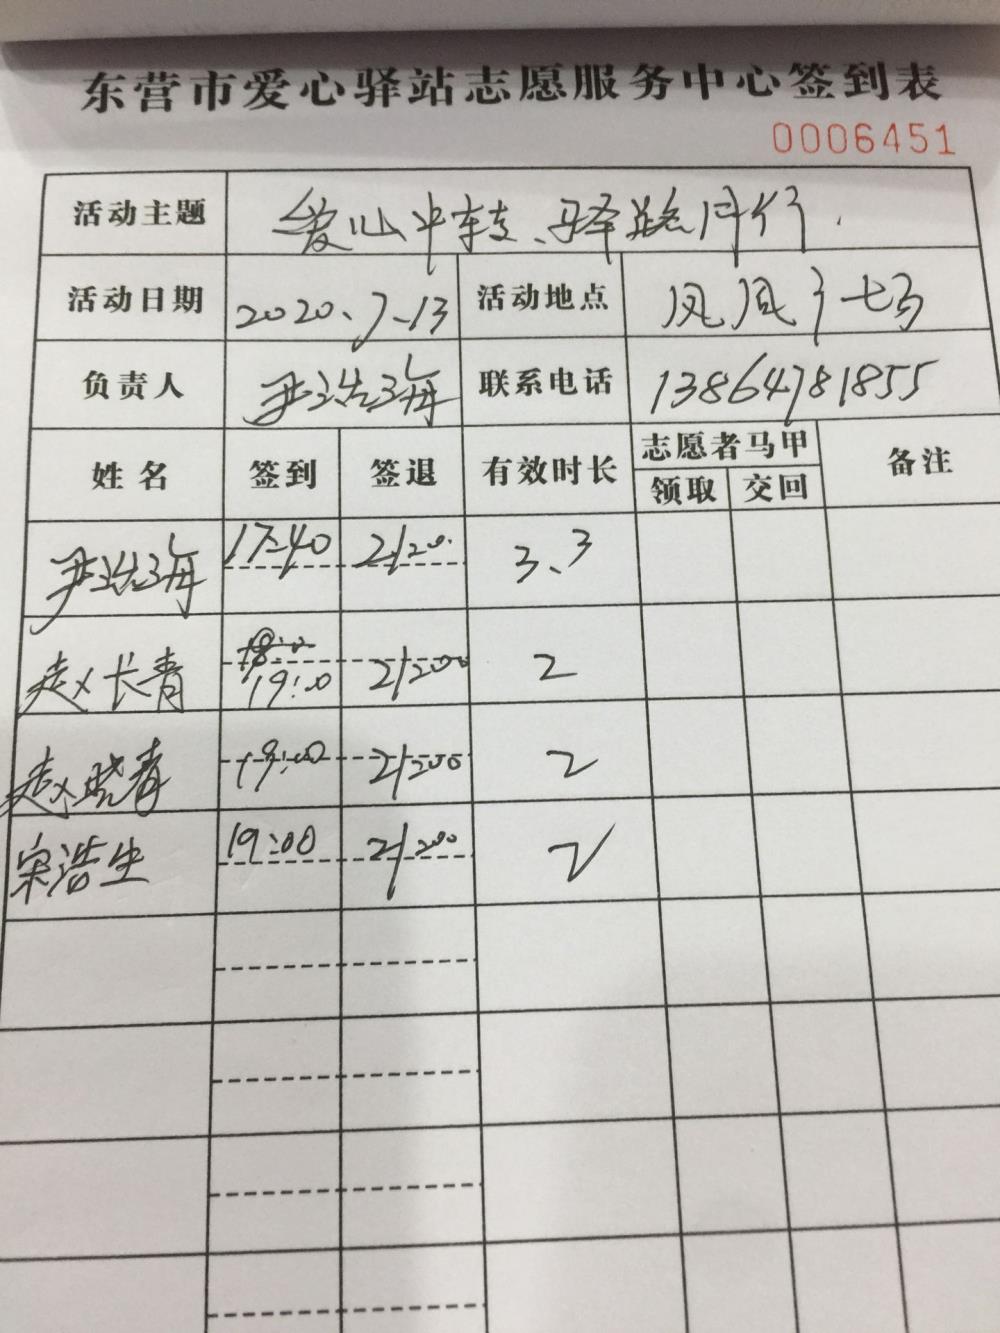 东营市爱心驿站志愿服务中心签到表
0006451
活动主题 爱心中转、驿路同行.
活动日期 2020.7.13 活动地点
负责人 尹浩海 联系电话 13864781855
姓名 签到 签退 有效时长 志愿者马甲 备注
领取 交回
尹浩海 17:40 21:20 3.3
赵长青 19:00 21:00 2
赵晓春 19:00 21:00 2
宋浩生 19:00 21:00 2